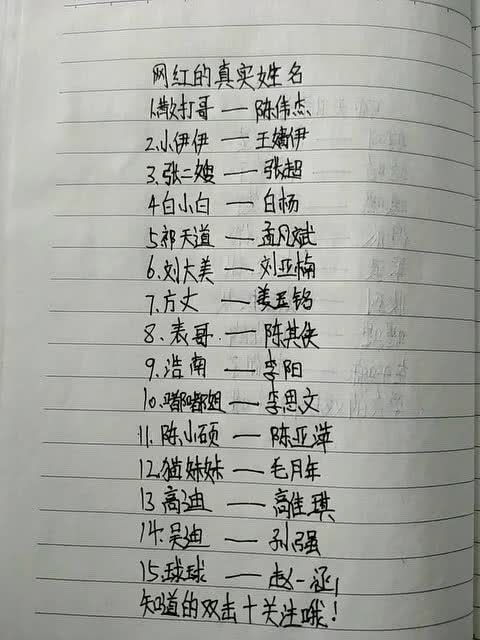 网红的真实姓名
1.散打哥——陈伟杰
2.小伊伊——王婧伊
3.张二嫂——张超
4白小白——白杨
5祁天道——孟凡斌
6.刘大美——刘亚楠
7.方丈——姜玉铭
8.表哥.——陈其侠
9.浩南——李阳
10.嘟嘟姐——李思文
11.陈小硕——陈亚萍
12.猫妹妹——毛月年
13高迪——高佳琪
14.吴迪——孙强
15.球球——赵一涵
知道的双击十关注哦!